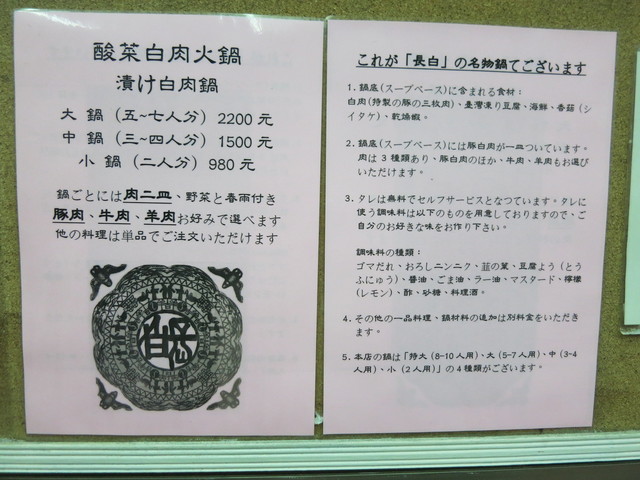 酸菜白肉火鍋
漬け白肉鍋
大 鍋 (五~七人分) 2200 元
中 鍋 (三~四人分) 1500 元
小 鍋 (二人分) 980 元
鍋ごとには肉二皿、野菜と春雨付き
豚肉、牛肉、羊肉お好みで選べます
他の料理は単品でご注文いただけます
これが「長白」の名物鍋でございます
1. 鍋底(スープベース)に含まれる食材:
白肉(特製の豚の三枚肉)、臺灣凍り豆腐、海鮮、香菇(シ
イタケ)、乾燥蝦。
2. 鍋底(スープベース)には豚白肉が一皿ついています。
肉は 3 種類あり、豚白肉のほか、牛肉、羊肉もお選び
いただけます。
3. タレは無料でセルフサービスとなつています。タレに
使う調味料は以下のものを用意しておりますので、ご
自分のお好きな味をお作り下さい。
調味料の種類:
ゴマだれ、おろしニンニク、韮の葉、豆腐よう (とう
ふにゅう)、醬油、ごま油、ラー油、マスタード、檸檬
(レモン)、酢、砂糖、料理酒。
4. その他の一品料理、鍋材料の追加は別料金をいただき
ます。
5. 本店の鍋は「特大 (8-10 人用)、大 (5-7 人用)、中 (3-4
人用)、小 (2 人用)」の 4 種類がございます。